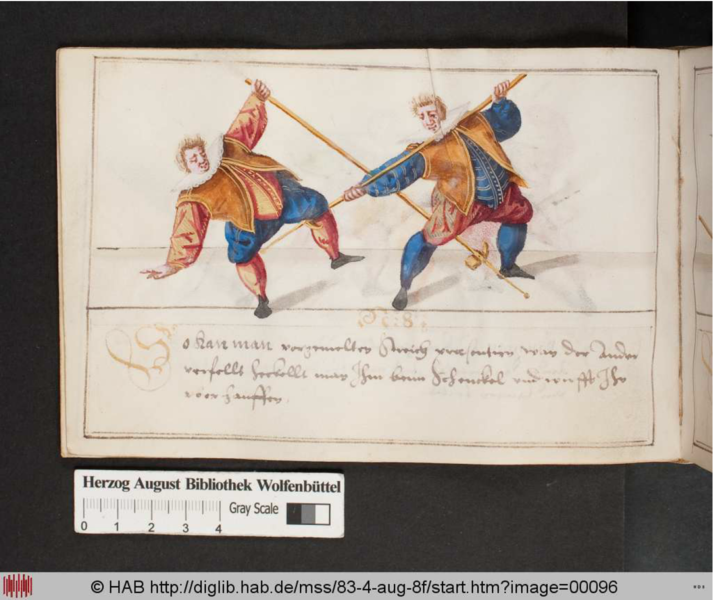 N: 8.
So kan man vorgemelten Streich ver... wan der Ander
verfellt ... man Ihm beim Schenckel und wirfft Ihn
vber hauffen.
Herzog August Bibliothek Wolfenbüttel
0 1 2 3 4
Gray Scale
© HAB http://diglib.hab.de/mss/83-4-aug-8f/start.htm?image=00096